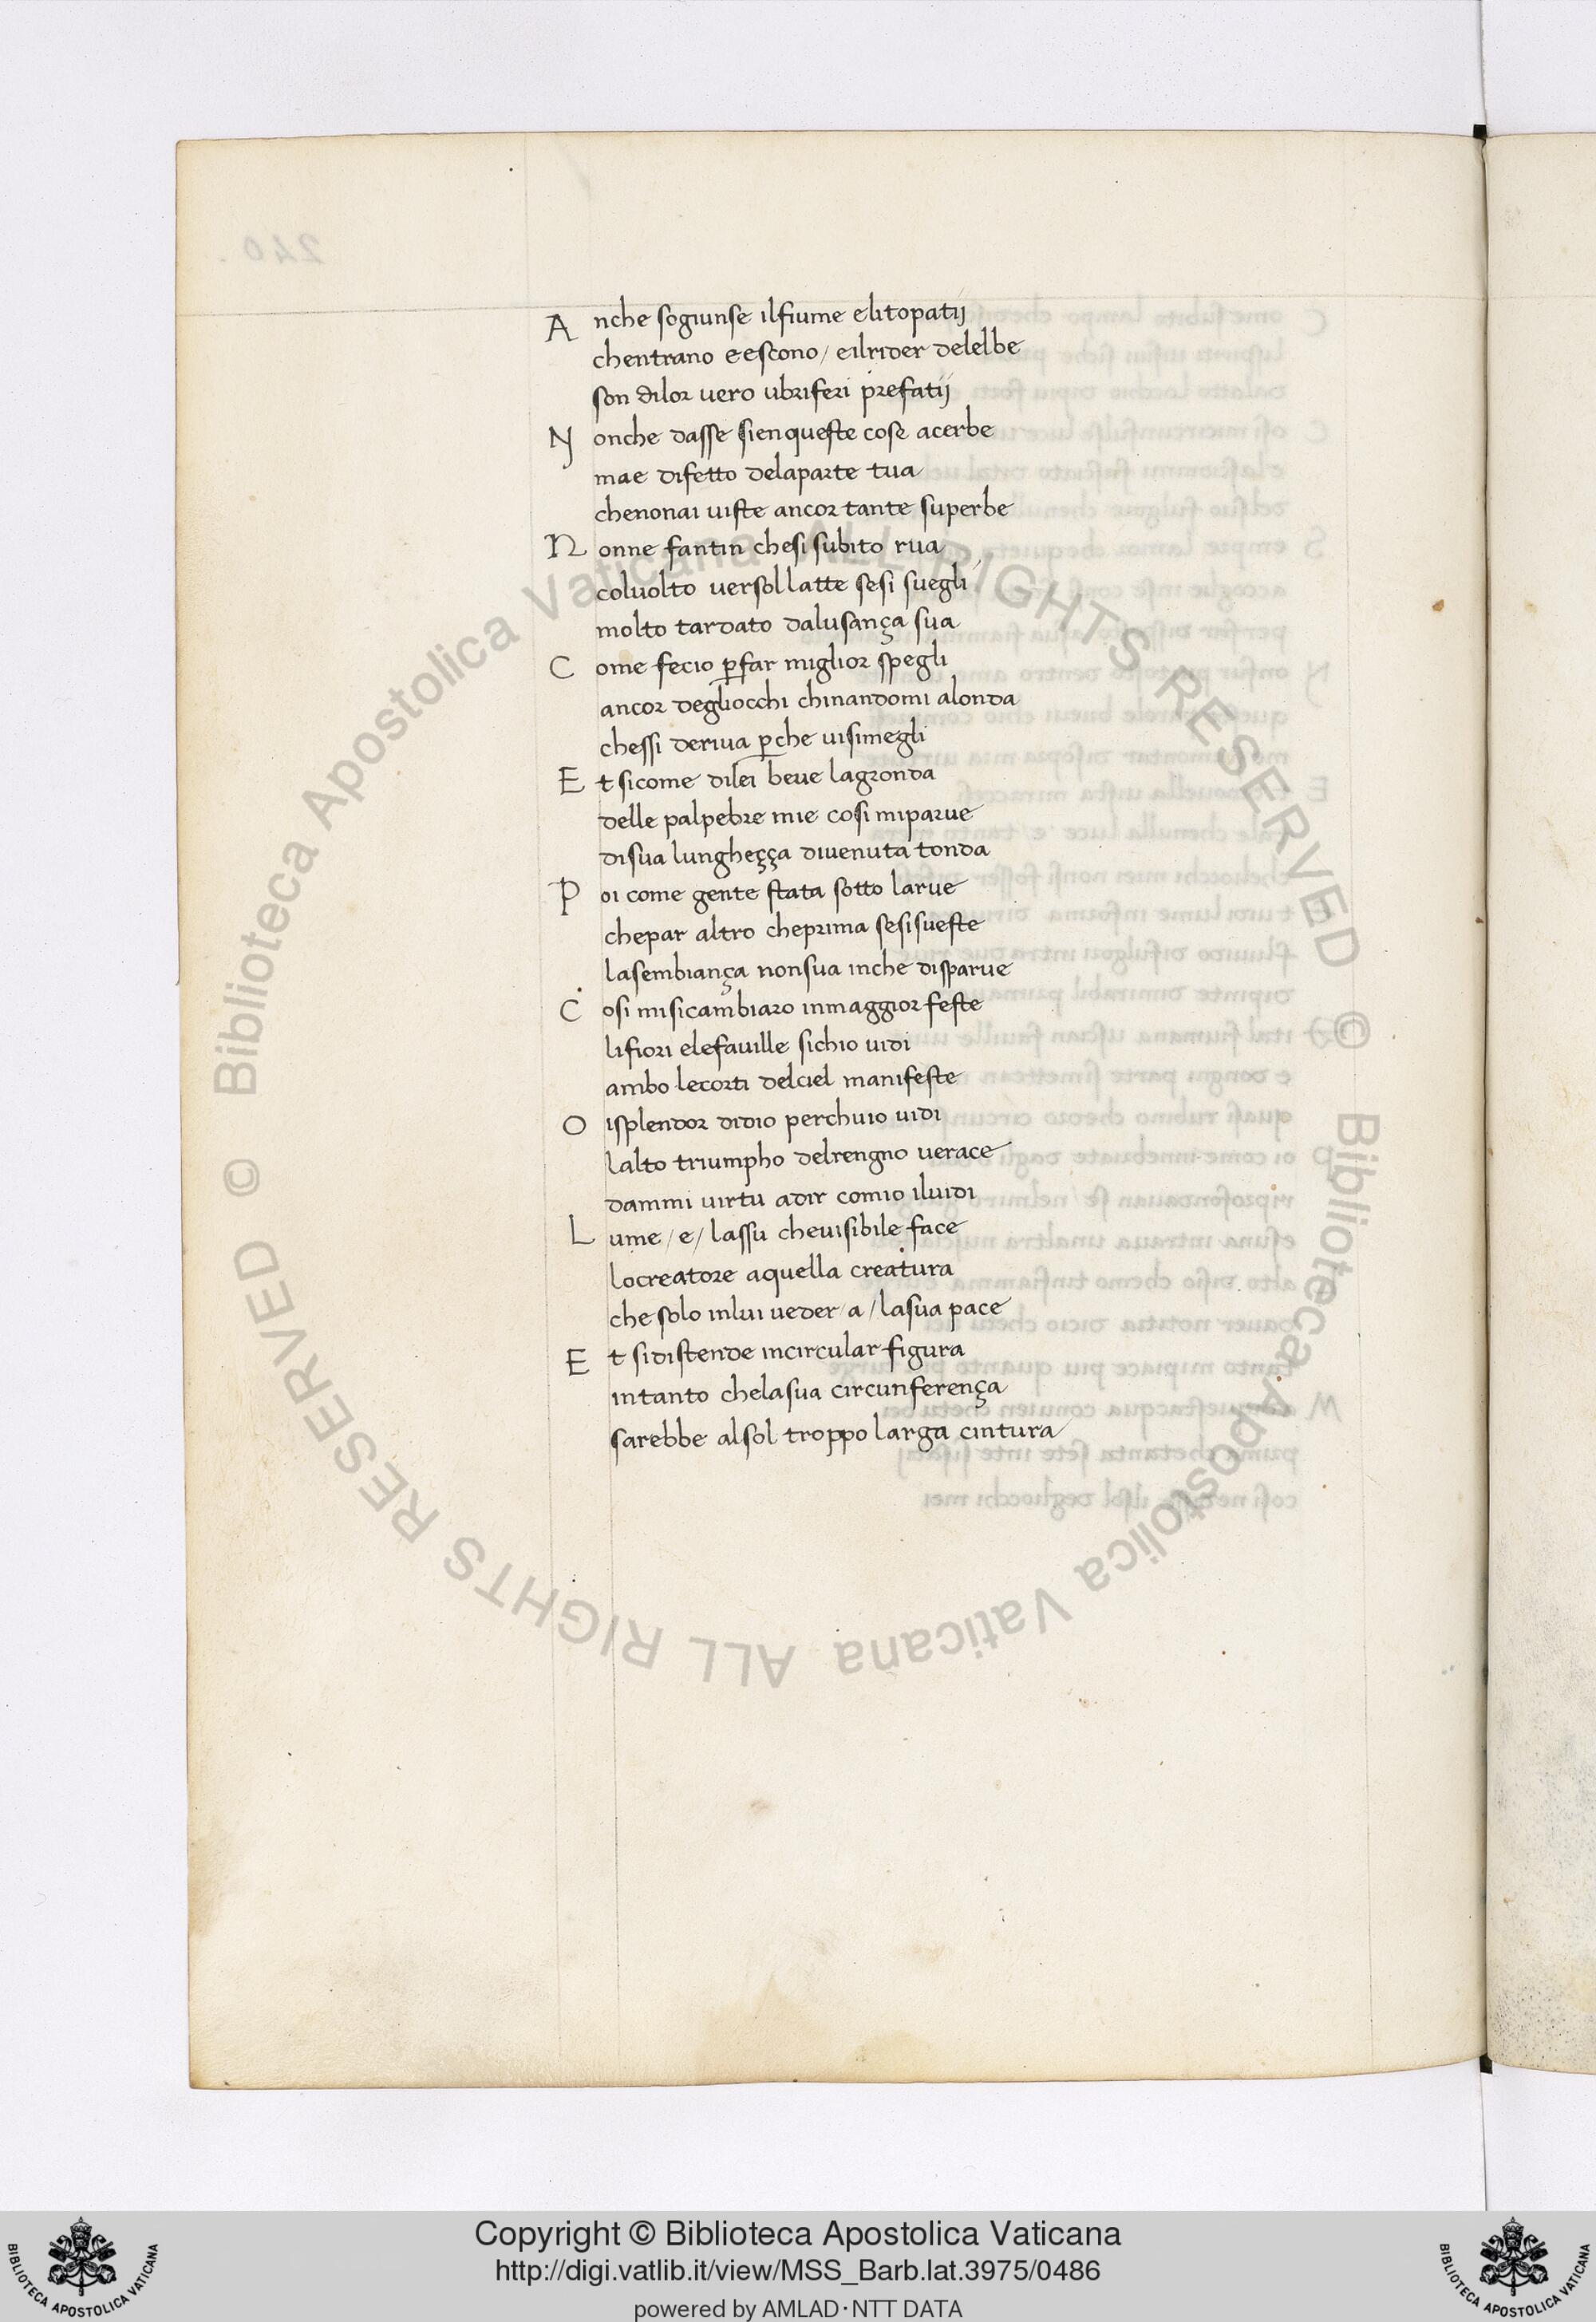 Anche sogiunse ilfiume elitopatij
chentrano eescono/ eilrider delelbe
son dilor uero ubriferi prefatij
Nonche dasse sienqueste cose acerbe
mae difetto delaparte tua
chenonai uiste ancor tante superbe
Nonne fantin chesi subito rua
coluolto uersollatte sesi suegli
molto tardato dalusança sua
Come fecio ꝑfar miglior spegli
ancor degliocchi chinandomi alonda
chessi deriua ꝑche uisimegli
Et sicome dilei beue lagronda
delle palpebre mie cosi miparue
disua lungheçça diuenuta tonda
Poi come gente stata sotto larue
chepar altro cheprima sesisueste
lasembiança nonsua inche disparue
Cosi misicambiaro inmaggior feste
lifiori elefauille sichio uidi
ambo lecorti delciel manifeste
O isplendor didio perchuio uidi
lalto triumpho delrengno uerace
dammi uirtu adir comio iluidi
Lume/e/lassu cheuisibile face
locreatore aquella creatura
che solo inlui ueder/a/lasua pace
Et sidistende incircular figura
intanto chelasua circunferença
sarebbe alsol troppo larga cintura
© Biblioteca Apostolica Vaticana ALL RIGHTS RESERVED
© Biblioteca Apostolica Vaticana ALL RIGHTS RESERVED
Copyright © Biblioteca Apostolica Vaticana
http://digi.vatlib.it/view/MSS_Barb.lat.3975/0486
powered by AMLAD·NTT DATA
BIBLIOTECA APOSTOLICA VATICANA
BIBLIOTECA APOSTOLICA VATICANA